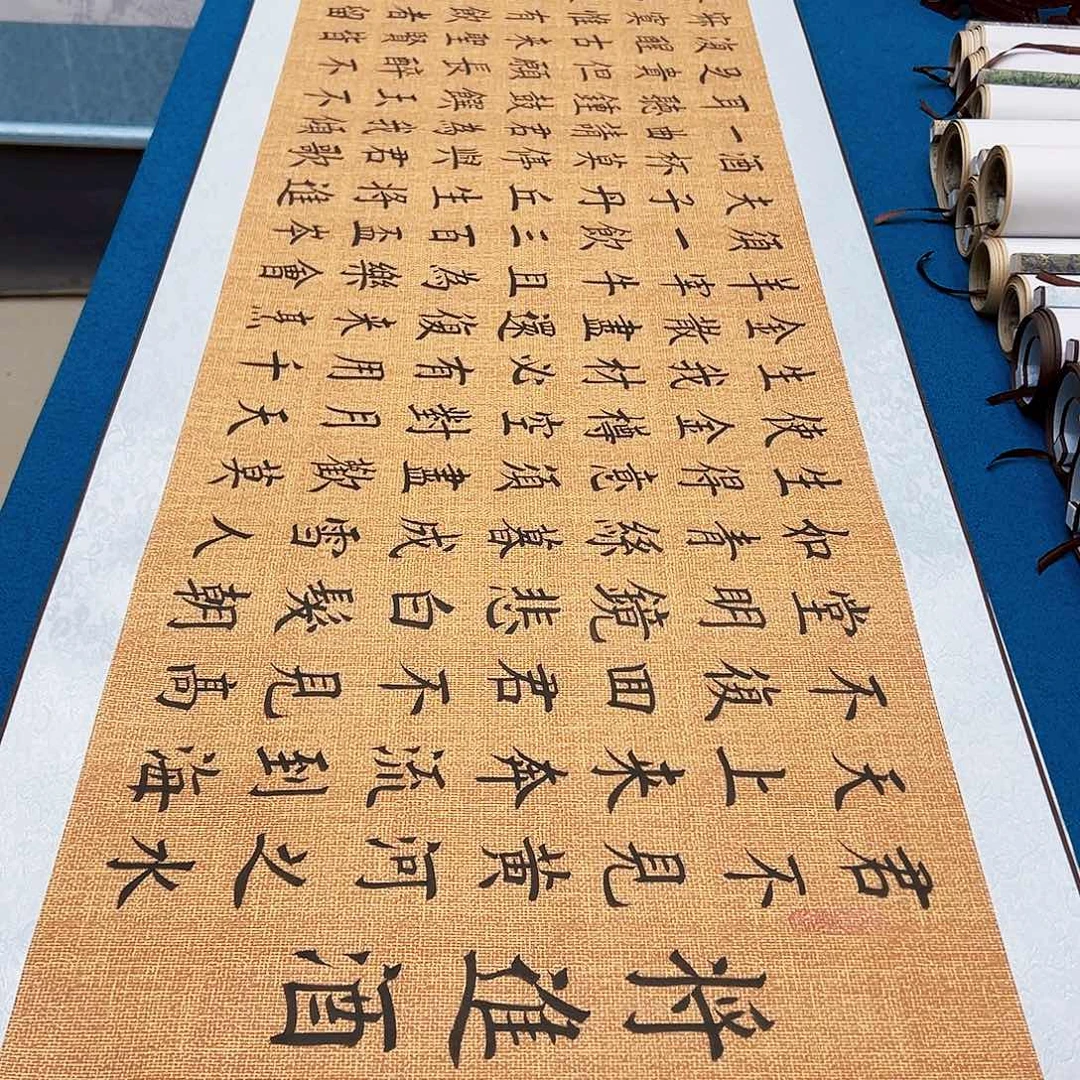 將進酒
君不見黃河之水
天上来奔流到海
不復回君不見高
堂明鏡悲白髮朝
如青絲暮成雪人
生得意須盡歡莫
使金樽空對月天
生我材必有用千
金散盡還復来烹
羊宰牛且為樂會
須一飲三百盃岑
夫子丹丘生將進
酒杯莫停與君歌
一曲請君為我傾
耳聽鍾鼓饌玉不
足貴但願長醉不
復醒古来聖賢皆
寂寞惟有飲者留